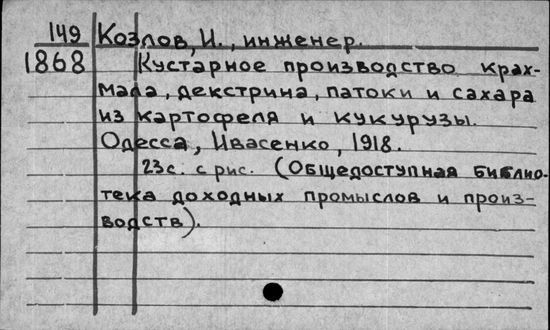 149 Козлов, И., инженер.
1868 Кустарное производство крах-
мала, декстрина, патоки и сахара
из картофеля и кукурузы.
Одесса, Ивасенко, 1918.
23 с. с рис. (Общедоступная библио-
тека доходных промыслов и произ-
водств).